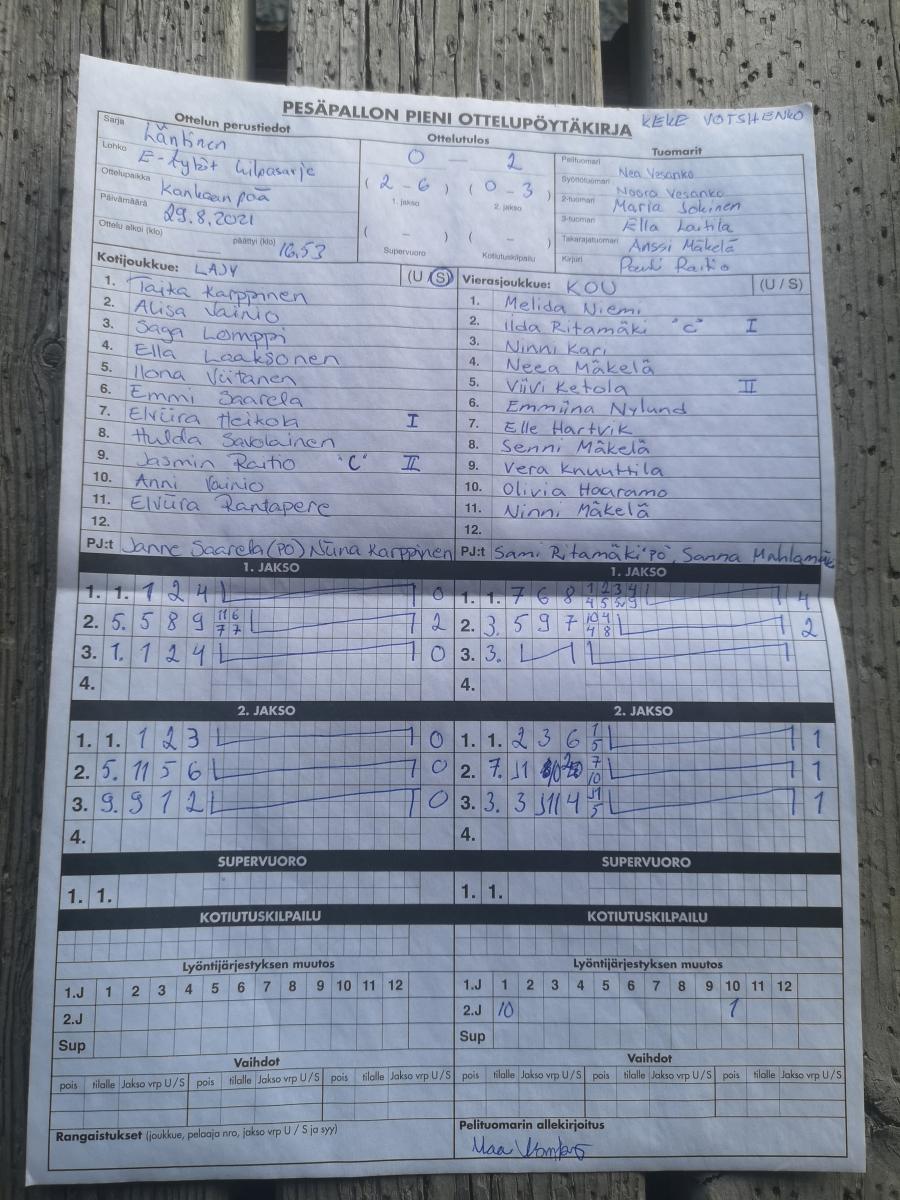 PESÄPALLON PIENI OTTELUPÖYTÄKIRJA
KEKE VOTSHENKO
Ottelun perustiedot
Sarja Läntinen
Lohko E-tytöt kilpasarja
Ottelupaikka Kankaanpää
Päivämäärä 29.8.2021
Ottelu alkoi (klo) päättyi (klo) 16.53
Ottelutulos
0 — 2
( 2 - 6 ) ( 0 - 3 )
1. jakso 2. jakso
( - ) ( - )
Supervuoro Kotiutuskilpailu
Tuomarit
Pelituomari Nea Vesanko
Syöttötuomari Noora Vesanko
2-tuomari Maria Jokinen
3-tuomari Ella Laitila
Takarajatuomari Anssi Mäkelä
Kirjuri Pauli Raitio
Kotijoukkue: LAJY (U / S)
1. Taika Karppinen
2. Alisa Vainio
3. Saga Lomppi
4. Ella Laaksonen
5. Ilona Viitanen
6. Emmi Saarela
7. Elviira Heikola I
8. Hulda Savolainen
9. Jasmin Raitio "C" II
10. Anni Vainio
11. Elviira Rantapere
12.
PJ:t Janne Saarela (PO) Niina Karppinen
Vierasjoukkue: KOU (U / S)
1. Melida Niemi
2. Iida Ritamäki "C" I
3. Ninni Kari
4. Neea Mäkelä
5. Viivi Ketola II
6. Emmiina Nylund
7. Elle Hartvik
8. Senni Mäkelä
9. Vera Knuuttila
10. Olivia Haaramo
11. Ninni Mäkelä
12.
PJ:t Sami Ritamäki "PO", Sanna Mahlamäki
1. JAKSO
1. 1. 1 2 4 0
2. 5. 5 8 9 11 6 7 7 2
3. 1. 1 2 4 0
4.
2. JAKSO
1. 1. 1 2 3 0
2. 5. 11 5 6 0
3. 9. 9 1 2 0
4.
SUPERVUORO
1. 1.
KOTIUTUSKILPAILU
Lyöntijärjestyksen muutos
1.J 1 2 3 4 5 6 7 8 9 10 11 12
2.J
Sup
Vaihdot
pois tilalle Jakso vrp U/S pois tilalle Jakso vrp U/S pois tilalle Jakso vrp U/S
Rangaistukset (joukkue, pelaaja nro, jakso vrp U / S ja syy)
1. JAKSO
1. 1. 7 6 8 1 2 3 4 4 5 9 4
2. 3. 5 9 7 10 4 4 8 2
3. 3.
4.
2. JAKSO
1. 1. 2 3 6 1 5 1
2. 7. 11 7 10 1
3. 3. 3 11 4 11 5 1
4.
SUPERVUORO
1. 1.
KOTIUTUSKILPAILU
Lyöntijärjestyksen muutos
1.J 1 2 3 4 5 6 7 8 9 10 11 12
2.J 10 1
Sup
Vaihdot
pois tilalle Jakso vrp U/S pois tilalle Jakso vrp U/S pois tilalle Jakso vrp U/S
Pelituomarin allekirjoitus